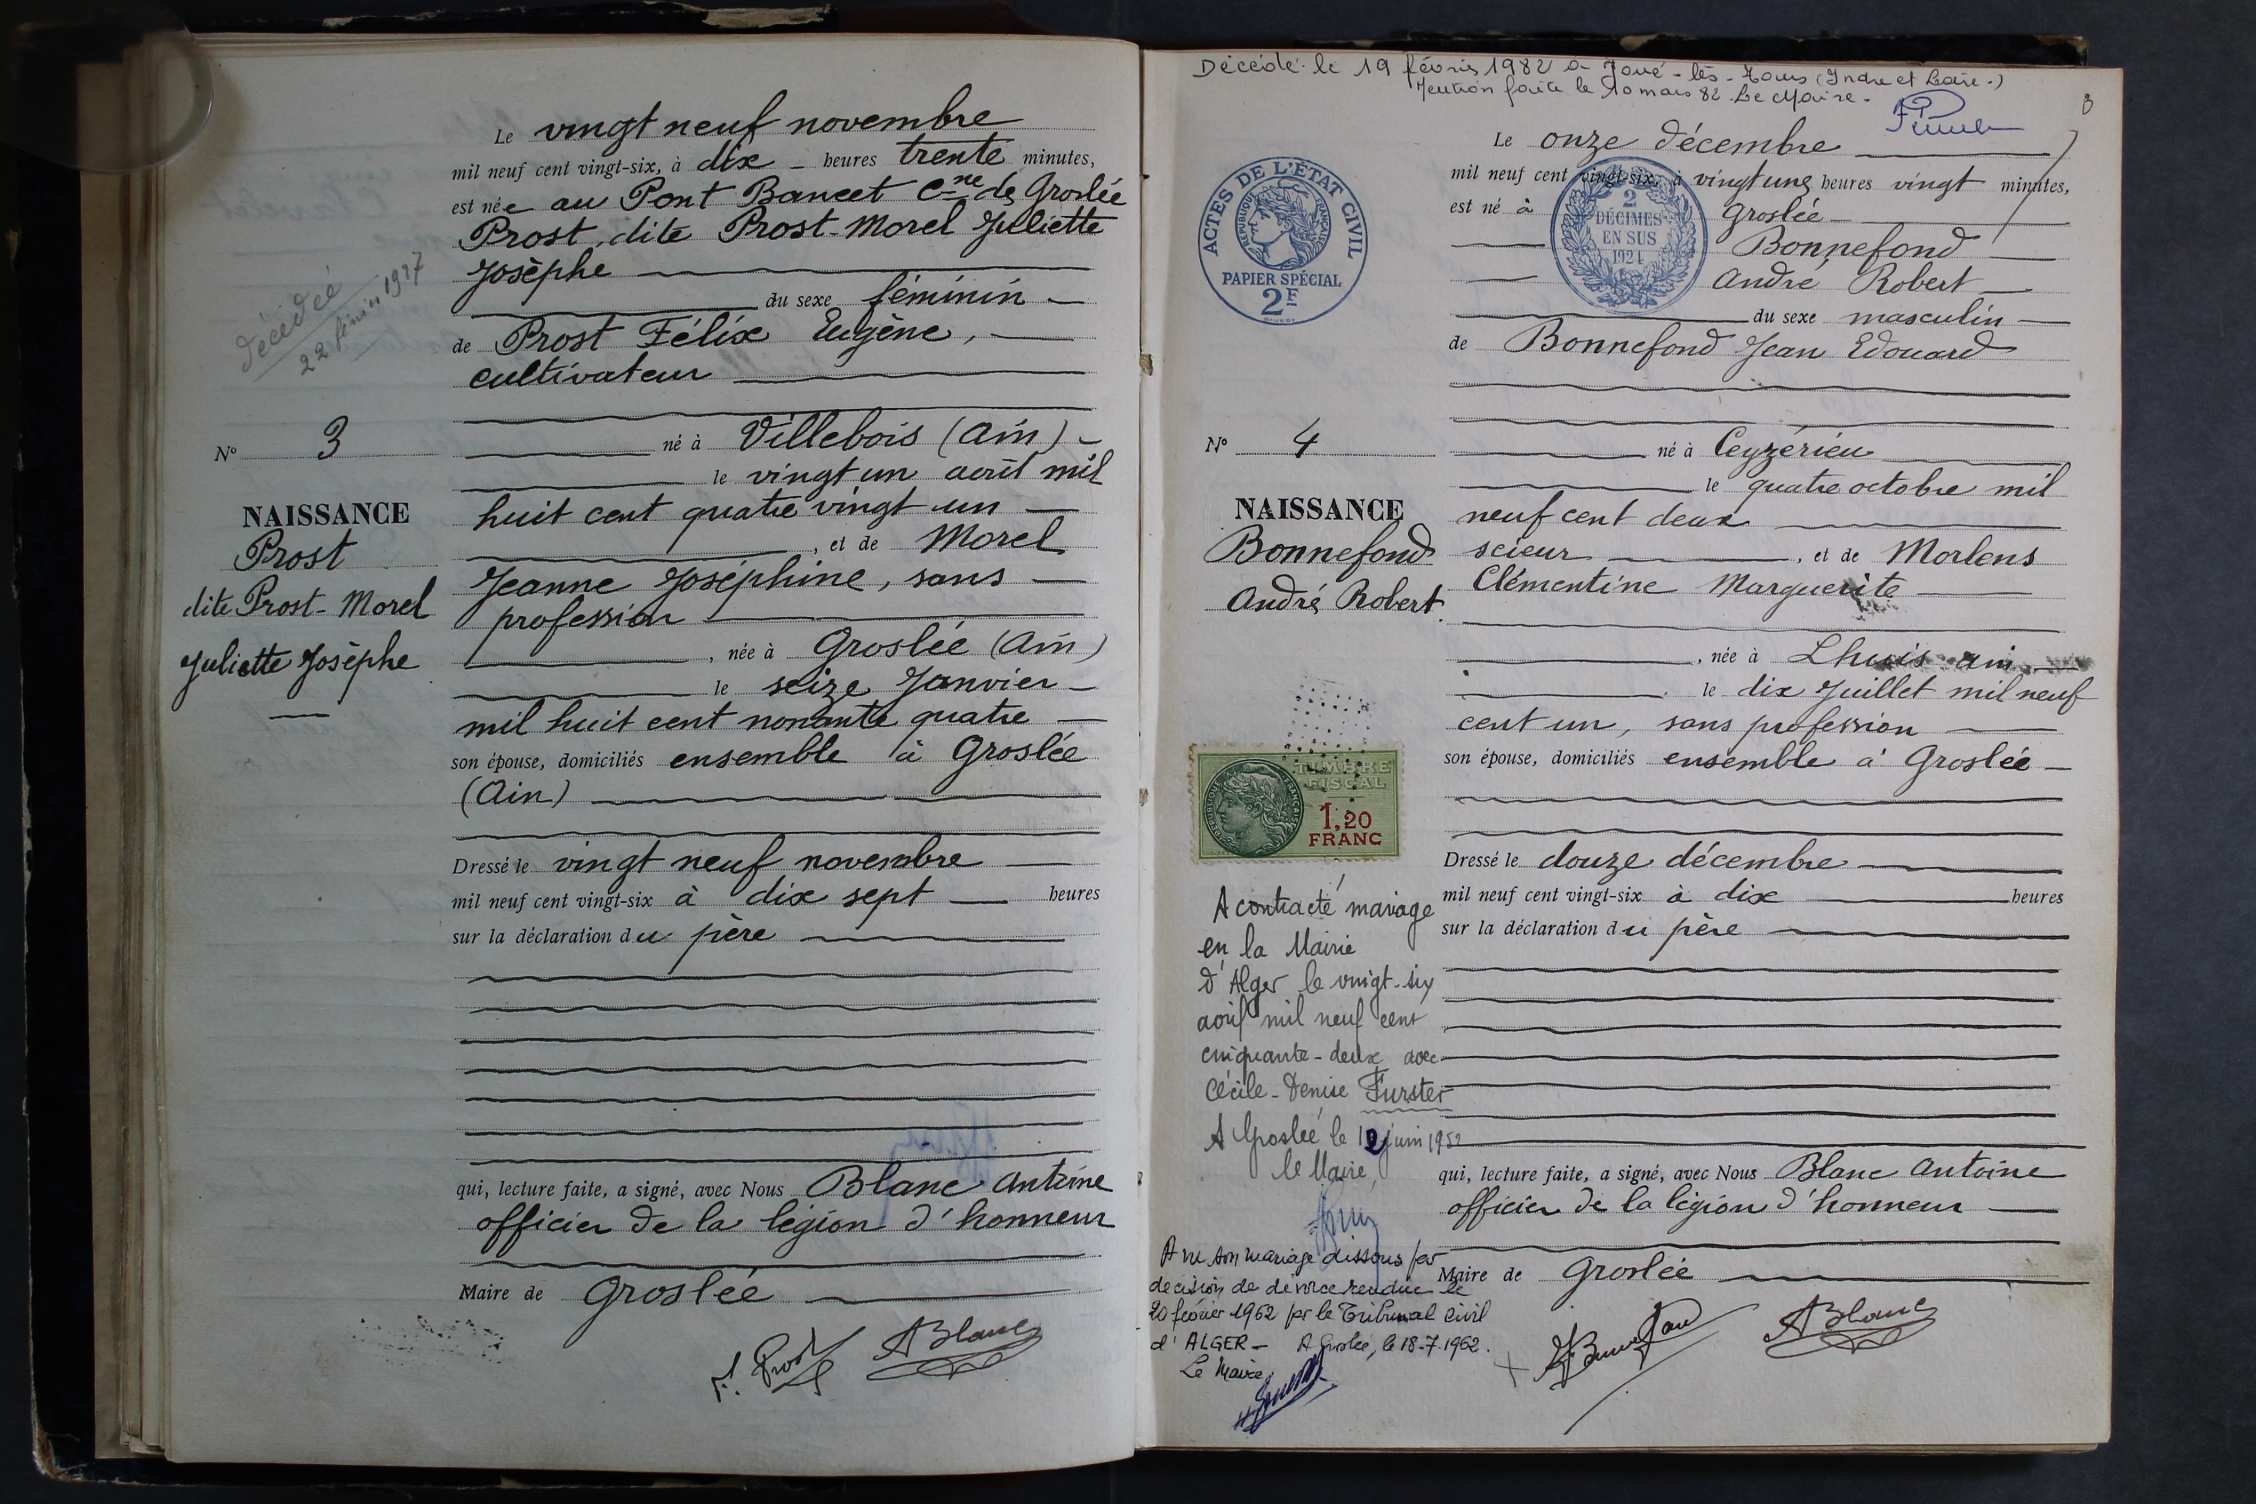 Le vingt neuf novembre
mil neuf cent vingt-six, à dix heures trente minutes,
est née au Pont Bancet Cne de Groslée
Prost, dite Prost-Morel Juliette
Josèphe
du sexe féminin
de Prost Félix Eugène,
cultivateur
né à Villebois (Ain)
le vingt un août mil
huit cent quatre vingt un
, et de Morel
Jeanne Joséphine, sans
profession
, née à Groslée (Ain)
le seize Janvier
mil huit cent nonante quatre
son épouse, domiciliés ensemble à Groslée
(Ain)
Dressé le vingt neuf novembre
mil neuf cent vingt-six à dix sept heures
sur la déclaration du père
qui, lecture faite, a signé, avec Nous Blanc Antoine
officier de la légion d'honneur
Maire de Groslée
F. Prost ABlanc
décédée
22 février 1937
No 3
NAISSANCE
Prost
dite Prost-Morel
Juliette Josèphe
Décédé le 19 février 1982 à Joué-lès-Tours (Indre et Loire.)
Mention faite le 10 mars 82 Le Maire.
8
ACTES DE L'ÉTAT CIVIL
RÉPUBLIQUE FRANÇAISE
PAPIER SPÉCIAL
2F
2
DÉCIMES
EN SUS
1924
Le onze décembre
mil neuf cent vingt-six, à vingt une heures vingt minutes,
est né à Groslée
Bonnefond
André Robert
du sexe masculin
de Bonnefond Jean Edouard
né à Ceyzérieu
le quatre octobre mil
neuf cent deux
scieur , et de Morlens
Clémentine Marguerite
, née à Lhuis Ain
le dix Juillet mil neuf
cent un, sans profession
son épouse, domiciliés ensemble à Groslée
Dressé le douze décembre
mil neuf cent vingt-six à dix heures
sur la déclaration du père
qui, lecture faite, a signé, avec Nous Blanc Antoine
officier de la légion d'honneur
Maire de Groslée
ABlanc
No 4
NAISSANCE
Bonnefond
André Robert.
TIMBRE
FISCAL
RÉPUBLIQUE FRANÇAISE
1,20
FRANC
A contracté mariage
en la Mairie
d'Alger le vingt-six
avril mil neuf cent
cinquante-deux avec
Cécile-Denise Furster
A Groslée le 12 juin 1952
le Maire,
A vu son mariage dissous par
decision de divorce rendue le
20 février 1962 pr le Tribunal Civil
d'ALGER - A Groslée, le 18-7-1962.
Le Maire